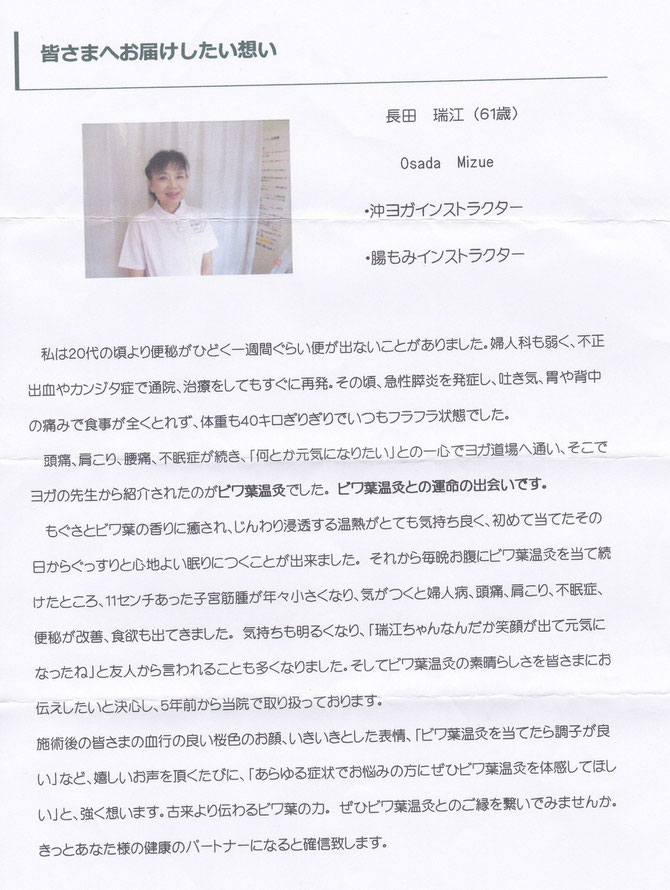 皆さまへお届けしたい想い
長田　瑞江（61歳）
Osada　Mizue
・沖ヨガインストラクター
・腸もみインストラクター
私は20代の頃より便秘がひどく一週間ぐらい便が出ないことがありました。婦人科も弱く、不正
出血やカンジタ症で通院、治療をしてもすぐに再発。その頃、急性膵炎を発症し、吐き気、胃や背中
の痛みで食事が全くとれず、体重も40キロぎりぎりでいつもフラフラ状態でした。
頭痛、肩こり、腰痛、不眠症が続き、「何とか元気になりたい」との一心でヨガ道場へ通い、そこで
ヨガの先生から紹介されたのがビワ葉温灸でした。ビワ葉温灸との運命の出会いです。
もぐさとビワ葉の香りに癒され、じんわり浸透する温熱がとても気持ち良く、初めて当てたその
日からぐっすりと心地よい眠りにつくことが出来ました。それから毎晩お腹にビワ葉温灸を当て続
けたところ、11センチあった子宮筋腫が年々小さくなり、気がつくと婦人病、頭痛、肩こり、不眠症、
便秘が改善、食欲も出てきました。気持ちも明るくなり、「瑞江ちゃんなんだか笑顔が出て元気に
なったね」と友人から言われることも多くなりました。そしてビワ葉温灸の素晴らしさを皆さまにお
伝えしたいと決心し、5年前から当院で取り扱っております。
施術後の皆さまの血行の良い桜色のお顔、いきいきとした表情、「ビワ葉温灸を当てたら調子が良
い」など、嬉しいお声を頂くたびに、「あらゆる症状でお悩みの方にぜひビワ葉温灸を体感してほし
い」と、強く想います。古来より伝わるビワ葉の力。ぜひビワ葉温灸とのご縁を繋いでみませんか。
きっとあなた様の健康のパートナーになると確信致します。